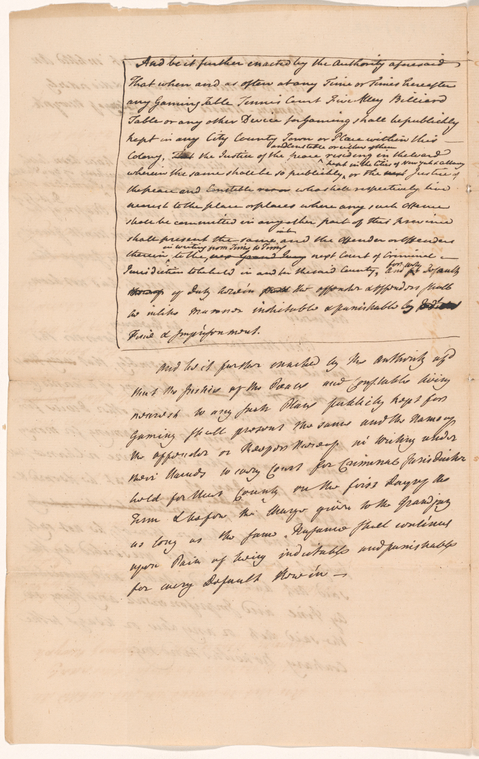 And be it further enacted by the Authority aforesaid
That when and as often at any Time or Times hereafter
any Gaming Table Tennis Court Five Alley Billiard
Table or any other Device for Gaming shall be publickly
kept in any City County Town or Place within this
Colony, the Justice of the peace residing in the Ward
wherein the same shall be so publickly kept in the Cities of New York & Albany or the Justice of
the peace and Constable who shall respectively live
nearest to the place or places where any such offence
shall be committed in any other part of this province
shall present the same and the Offender or Offenders
therein in writing from Time to Time to the next Court of Criminal
Jurisdiction to be held in and for the said County, and for every Default
of Duty herein the offender offenders shall
be in like Manner indictable & punishable by
Fine & Imprisonment.
And be it further enacted by the Authority afsd
that the Justices of the Peace and Constable living
nearest to any such Place publickly kept for
Gaming shall present the same and the Names of
the offender or Keepers thereof in writing under
their Hands to every Court for Criminal Jurisdiction
held for that County on the first Day of the
Term & before the Charge given to the Grand jury
as long as the same Nusance shall continue
upon Pain of being indictable and punishable
for every Default therein